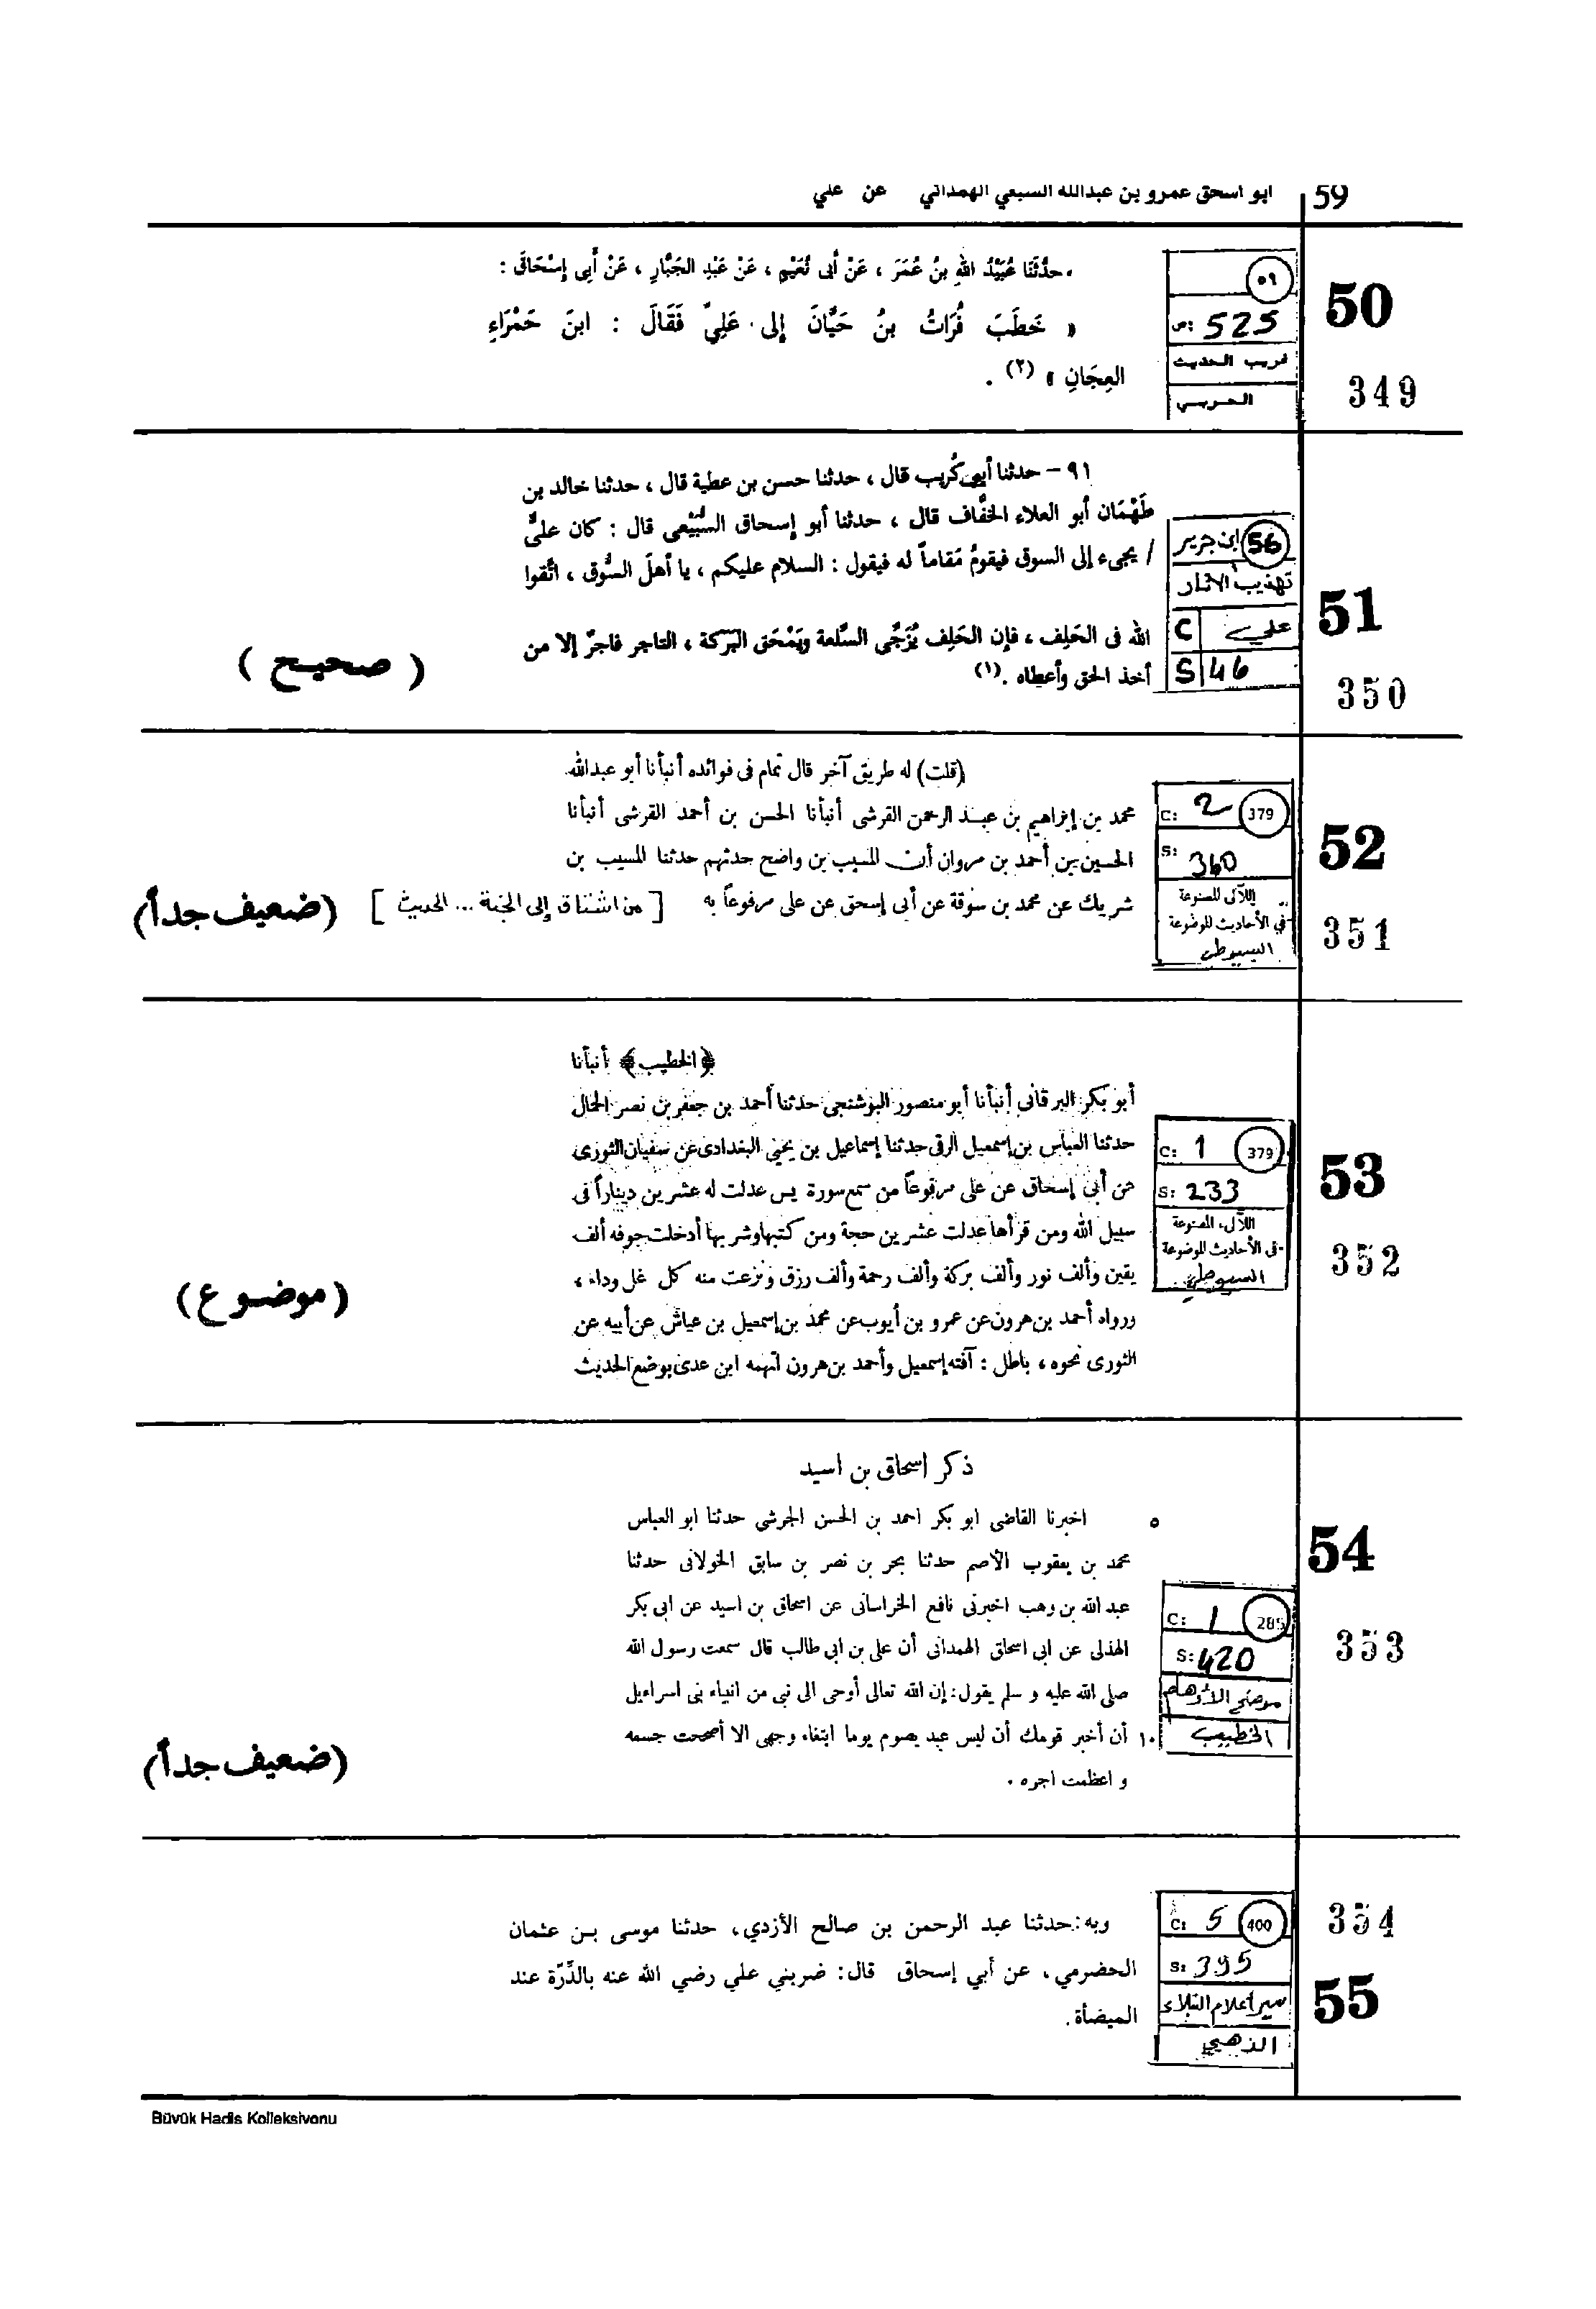 59 ابو اسحق عمرو بن عبدالله السبعي الهمداني عن علي
50
349
٥٩
ص: 525
غريب الحديث
الحربي
حدَّثَنَا عُبَيْدُ اللهِ بنُ عُمَرَ ، عَنْ أَبى نُعَيْمٍ ، عَنْ عَبْدِ الجَبَّارِ ، عَنْ أَبِى إِسْحَاقَ :
« خَطَبَ فُرَاتُ بنُ حَيَّانَ إلى عَلِيٍّ فَقَالَ : ابنَ حَمْرَاءِ
العِجَانِ » (٢) .
51
350
56 ابن جرير
تهذيب الاثار
C علي
S 46
٩١ – حدثنا أبى كُريب قال ، حدثنا حسن بن عطية قال ، حدثنا خالد بن
طَهْمَان أبو العلاء الخفَّاف قال ، حدثنا أبو إسحاق السَّبِيْعى قال : كان علىٌّ
/ يجىء إلى السوق فيقومُ مَقاماً له فيقول : السلام عليكم ، يا أهلَ السُّوق ، اتَّقوا
الله فى الحَلِف ، فإن الحَلِف يُزَجِّى السِّلعة ويَمْحَق البَرَكة ، التاجر فاجرٌ إلا من
أخذ الحق وأعطاه .(١)
( صحيح )
52
351
C: 2 379
S: 360
اللآلى المصنوعة
في الأحاديث الموضوعة
السيوطي
(قلت) له طريق آخر قال تمام فى فوائده أنبأنا أبو عبدالله
محمد بن إبراهيم بن عبد الرحمن القرشى أنبأنا الحسن بن أحمد القرشى أنبأنا
الحسين بن أحمد بن مروان أن المسيب بن واضح حدثهم حدثنا المسيب بن
شريك عن محمد بن سوقة عن أبى إسحق عن على مرفوعاً به [ من اشتاق إلى الجنة ... الحديث ]
(ضعيف جداً)
53
352
C: 1 379
S: 233
اللآلىء المصنوعة
فى الأحاديث الموضوعة
السيوطي
﴿الخطيب﴾ أنبأنا
أبو بكر البرقانى أنبأنا أبو منصور البوشنجى حدثنا أحمد بن جعفر بن نصر الحال
حدثنا العباس بن إسمعيل الرقى حدثنا إسماعيل بن يحيى البغدادى عن سفيان الثورى
عن أبى إسحاق عن على مرفوعاً من سمع سورة يس عدلت له عشرين ديناراً فى
سبيل الله ومن قرأها عدلت عشرين حجة ومن كتبها وشربها أدخلت جوفه ألف
يقين وألف نور وألف بركة وألف رحمة وألف رزق ونزعت منه كل غل وداء ،
ورواه أحمد بن هرون عن عمرو بن أيوب عن محمد بن إسمعيل بن عياش عن أبيه عن
الثورى نحوه ، باطل : آفته إسمعيل وأحمد بن هرون اتهمه ابن عدى بوضع الحديث
(موضوع)
54
353
C: 1 285
S: 420
موضح الأوهام
الخطيب
ذكر اسحاق بن اسيد
٥ اخبرنا القاضى ابو بكر احمد بن الحسن الجرشى حدثنا ابو العباس
محمد بن يعقوب الأصم حدثنا بحر بن نصر بن سابق الخولانى حدثنا
عبد الله بن وهب اخبرنى نافع الخراسانى عن اسحاق بن اسيد عن ابى بكر
الهذلى عن ابى اسحاق الهمدانى أن على بن ابى طالب قال سمعت رسول الله
صلى الله عليه و سلم يقول: إن الله تعالى أوحى الى نبى من انبياء بنى اسراءيل
١٠ أن أخبر قومك أن ليس عبد يصوم يوما ابتغاء وجهى الا أصححت جسمه
و اعظمت اجره .
(ضعيف جداً)
354
55
C: 5 400
S: 395
سير أعلام النبلاء
الذهبي
وبه: حدثنا عبد الرحمن بن صالح الأزدي، حدثنا موسى بن عثمان
الحضرمي، عن أبي إسحاق قال: ضربني علي رضي الله عنه بالدِّرّة عند
الميضأة.
Büyük Hadis Kolleksiyonu